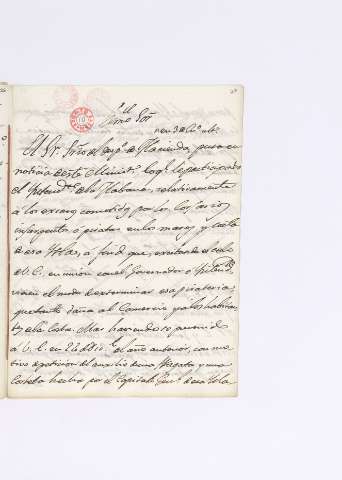 Exmo Sor
El Sr. Srio del Desp.o de Hacienda pasa en
noticia de este Minist.o lo q.e le participa
el Intend.te de la Habana, relativamente
á los excesos cometidos por los Corsarios
insurgentes ó piratas en los mares y costas
de esa Ysla, á fin de que, excitando el celo
de V.E. en union con el Governador é Intend.te
vean el modo de exterminar esa pirateria
que tanto daña al Comercio y á los habitan
tes de la Costa. Mas haviendose prevenido
á V.E. en 22 de Dic.e el año anterior, con mo
tivo de peticion de auxilio de una Fragata y una
Corbeta hecha por el Capitan Gen.l de esa Ysla